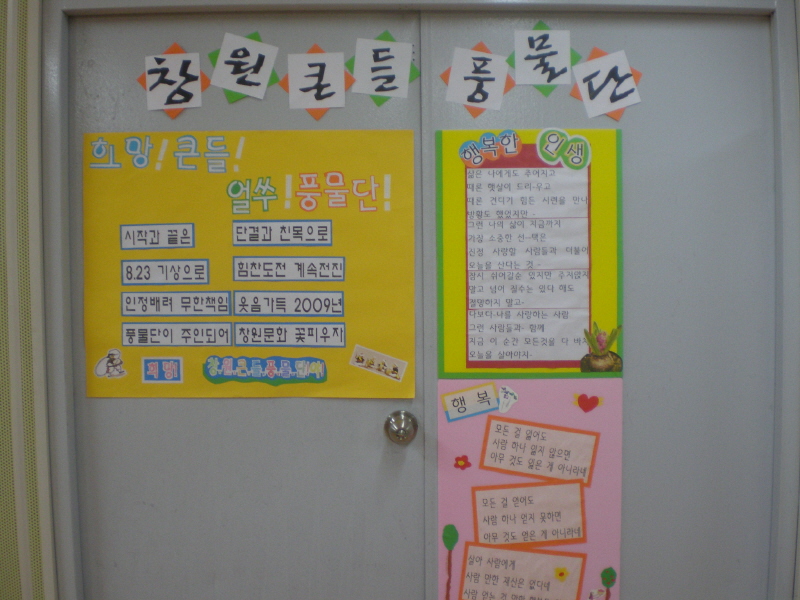 창원큰들 풍물단
희망! 큰들!
얼쑤! 풍물단!
시작과 끝은
단결과 친목으로
8.23 기상으로
힘찬도전 계속전진
인정배려 무한책임
웃음가득 2009년
풍물단이 주인되어
창원문화 꽃피우자
창.원.큰.들.풍.물.단
행복한 인생
삶은 나에게도 주어지고
때론 햇살이 드리우고
때론 견디기 힘든 시련을 만나
방황도 했었지만
그런 나의 삶이 지금까지
가질 소중한 선택은
진정 사랑할 사람들과 더불어
오늘을 산다는 것
잠시 쉬어갈순 있지만 주저앉지
말고 넘어 질수는 있다 해도
절망하지 말고
나보다 나를 사랑하는 사람
그런 사람들과 함께
지금 이 순간 모든것을 다 바쳐
오늘을 살아야지
행복
모든 걸 잃어도
사람 하나 잃지 않으면
아무 것도 잃은 게 아니라네
모든 걸 얻어도
사람 하나 얻지 못하면
아무 것도 얻은 게 아니라네
살아 사람에게
사람 만한 재산은 없다네
사람 얻는 것 만한